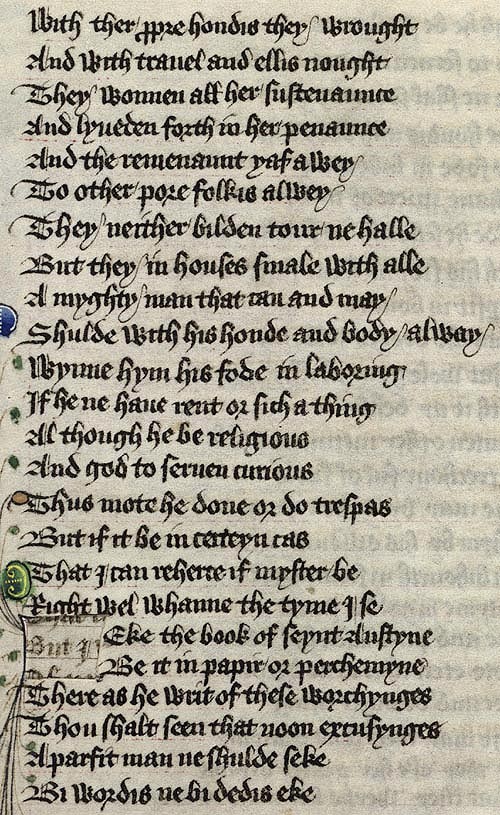 With ther ꝓpre hondis they wrought
And with travel and ellis nought
They wonnen all her sustenaunce
And lyueden forth in her penaunce
And the remenaunt yaf awey
To other pore folkis alwey
They neither bilden tour ne halle
But they in houses smale with alle
A myghty man that can and may
Shulde with his honde and body alway
Wynne hym his fode in laboring
If he ne haue rent or sich a thing
Al though he be religious
And god to seruen curious
Thus mote he done or do trespas
But if it be in certeyn cas
That I can reherce if myster be
Right wel whanne the tyme I se
Eke the book of seynt Austyne
But I
Be it in papir or perchemyne
There as he writ of these worchynges
Thou shalt seen that noon excusynges
A parfit man ne shulde seke
Bi wordis ne bi dedis eke